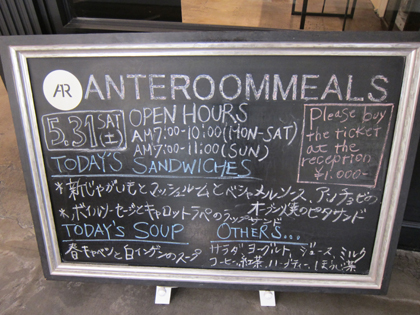 AR
ANTEROOMMEALS
5.31 SAT (土)
OPEN HOURS
AM7:00-10:00(MON-SAT)
AM7:00-11:00(SUN)
Please buy
the ticket
at the
reception
¥1,000-
TODAY'S SANDWICHES
*新じゃがいもとマッシュルームとベシャメルソース、アンチョビの
オープン
ピタサンド
*ボイルソーセージとキャロットラペの
TODAY'S SOUP
春キャベツと白インゲンのスープ
OTHERS...
サラダ ヨーグルト、ジュース、ミルク
コーヒー、紅茶、ハーブティー、ほうじ茶